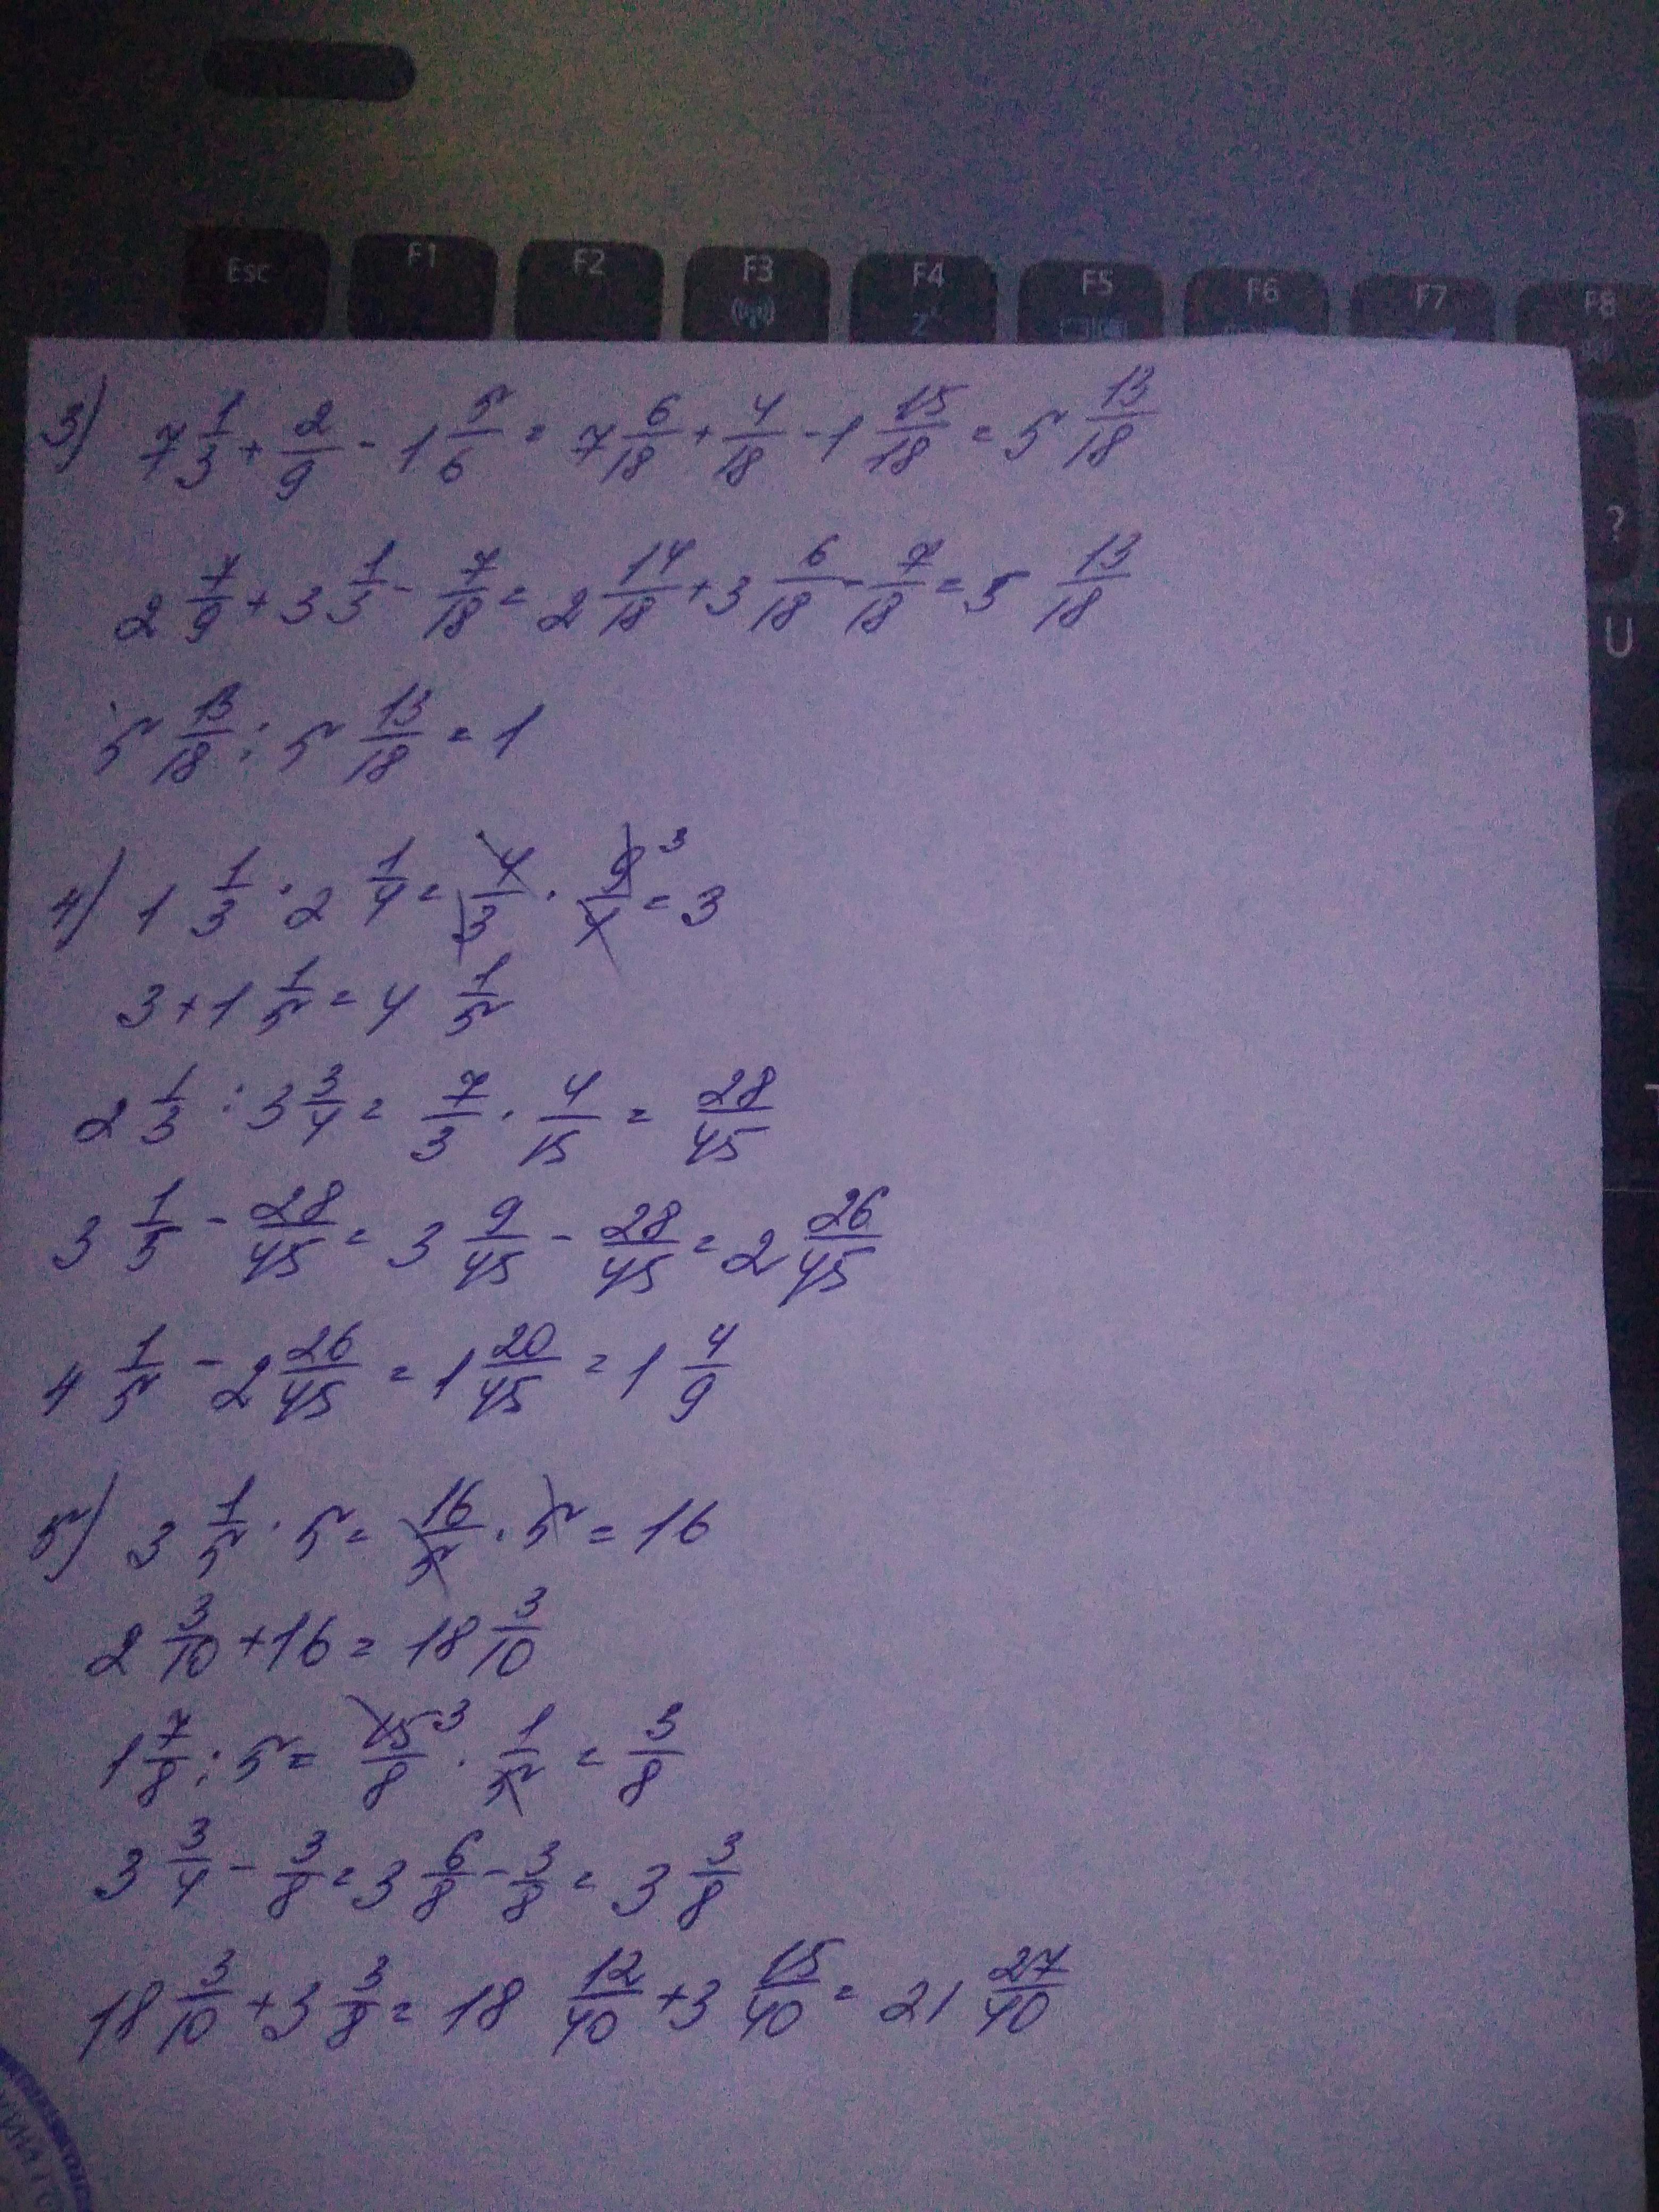 Esc F1 F2 F3 F4 F5 F6 F7 F8
Z
?
U
3) 7 1/3 + 2/9 - 1 5/6 = 7 6/18 + 4/18 - 1 15/18 = 5 13/18
2 7/9 + 3 1/3 - 7/18 = 2 14/18 + 3 6/18 - 7/18 = 5 13/18
5 13/18 : 5 13/18 = 1
4) 1 1/3 · 2 1/4 = 4/3 · 9/4 3 = 3
3 + 1 1/5 = 4 1/5
2 1/3 : 3 3/4 = 7/3 · 4/15 = 28/45
3 1/5 - 28/45 = 3 9/45 - 28/45 = 2 26/45
4 1/5 - 2 26/45 = 1 20/45 = 1 4/9
5) 3 1/5 · 5 = 16/5 · 5 = 16
2 3/10 + 16 = 18 3/10
1 7/8 : 5 = 15 3/8 · 1/5 = 3/8
3 3/4 - 3/8 = 3 6/8 - 3/8 = 3 3/8
18 3/10 + 3 3/8 = 18 12/40 + 3 15/40 = 21 27/40